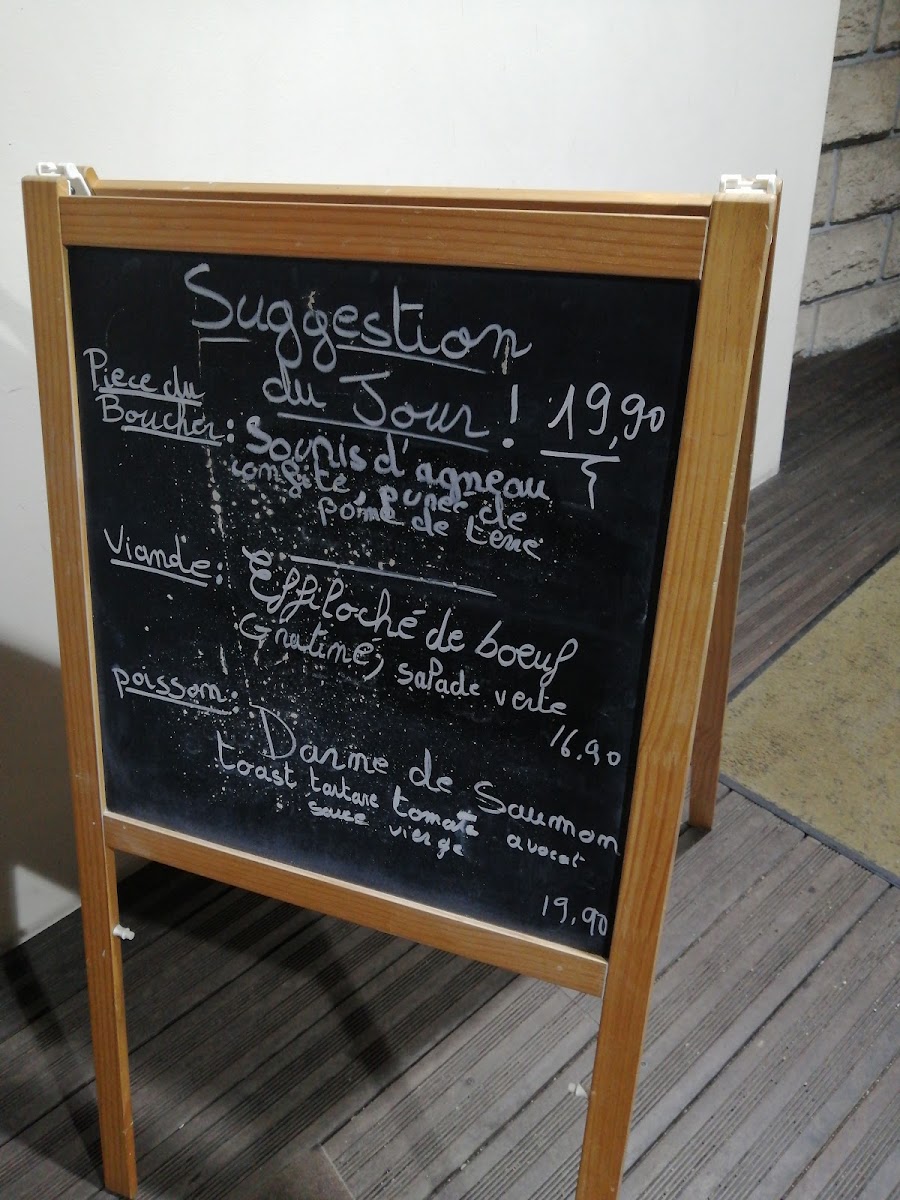 Suggestion
du Jour !
19,90
Piece du
Boucher : Souris d'agneau
confite, puree de
pome de terre
Viande : Effiloché de boeuf
Gratiné, salade verte
16.90
poisson : Darne de Saumon
toast tartare tomate avocat
sauce vierge
19,90